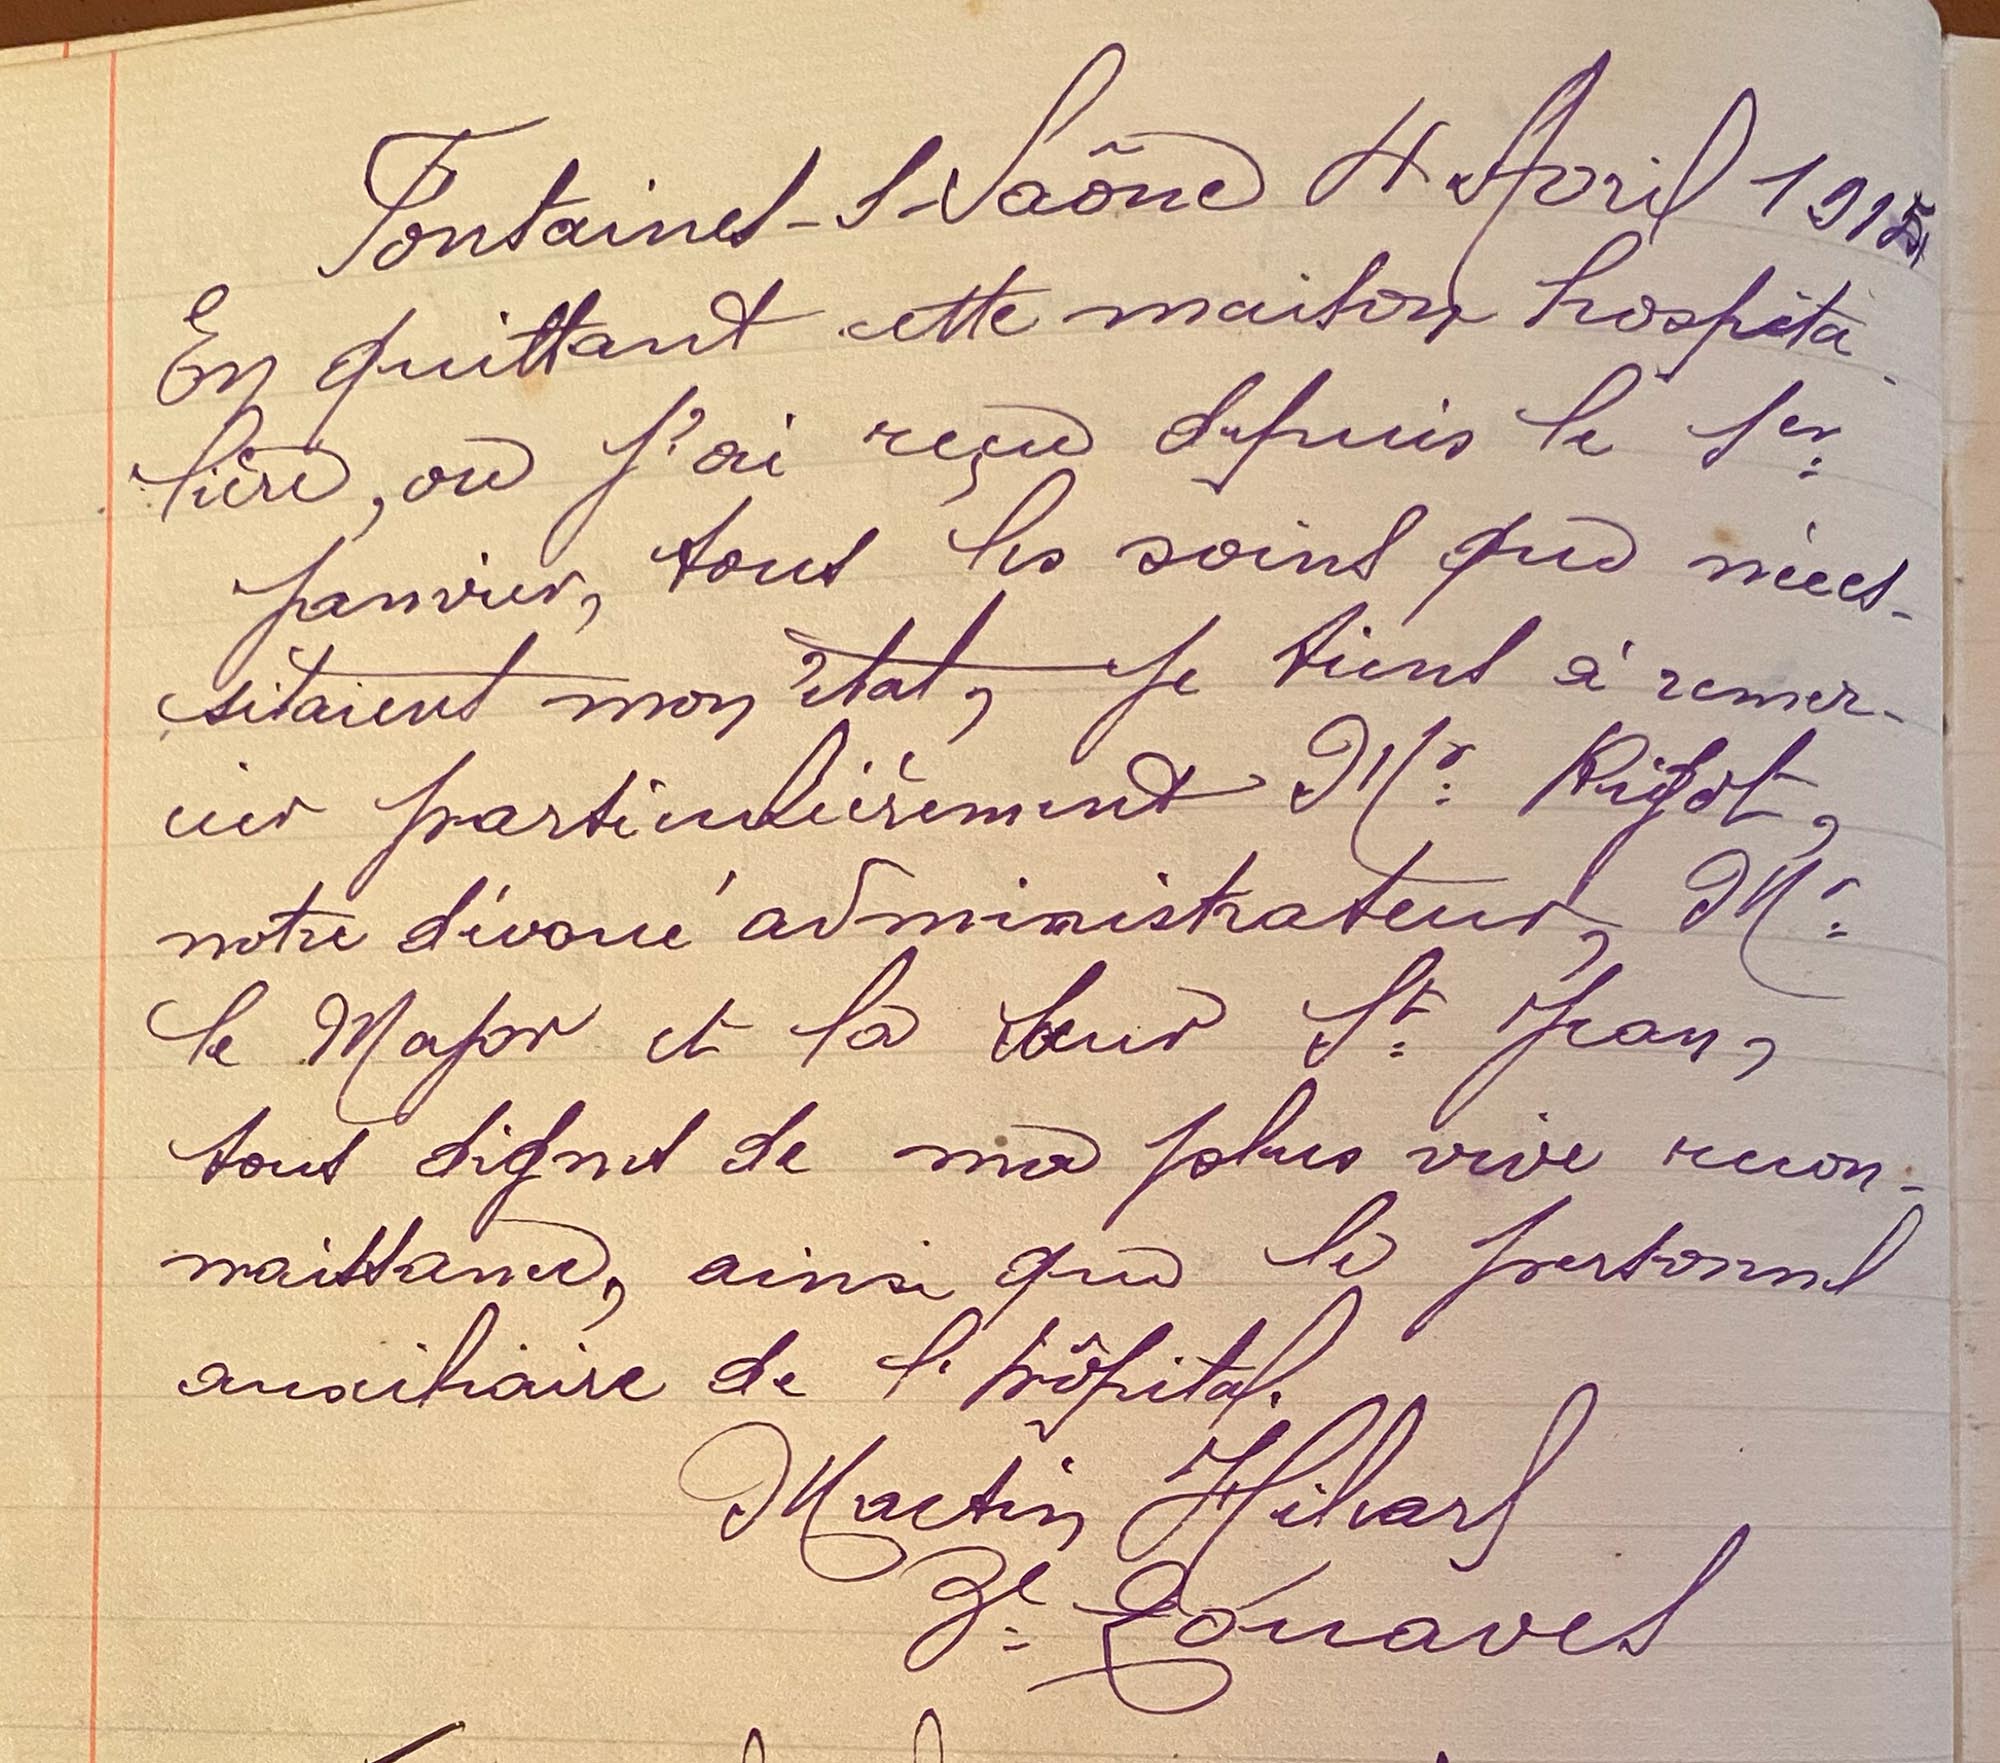 Fontaines-s-Saône 4 Avril 1915
En quittant cette maison hospita-
lière, où j'ai reçu depuis le 1er
janvier, tous les soins que néces-
sitaient mon état, je tiens à remer-
cier particulièrement Mr. Rigot,
notre dévoué administrateur, Mr.
le Major et la sœur St. Jean,
tous dignes de ma plus vive recon-
naissance, ainsi que le personnel
auxiliaire de l'hôpital.
Martin
3e. Zouaves